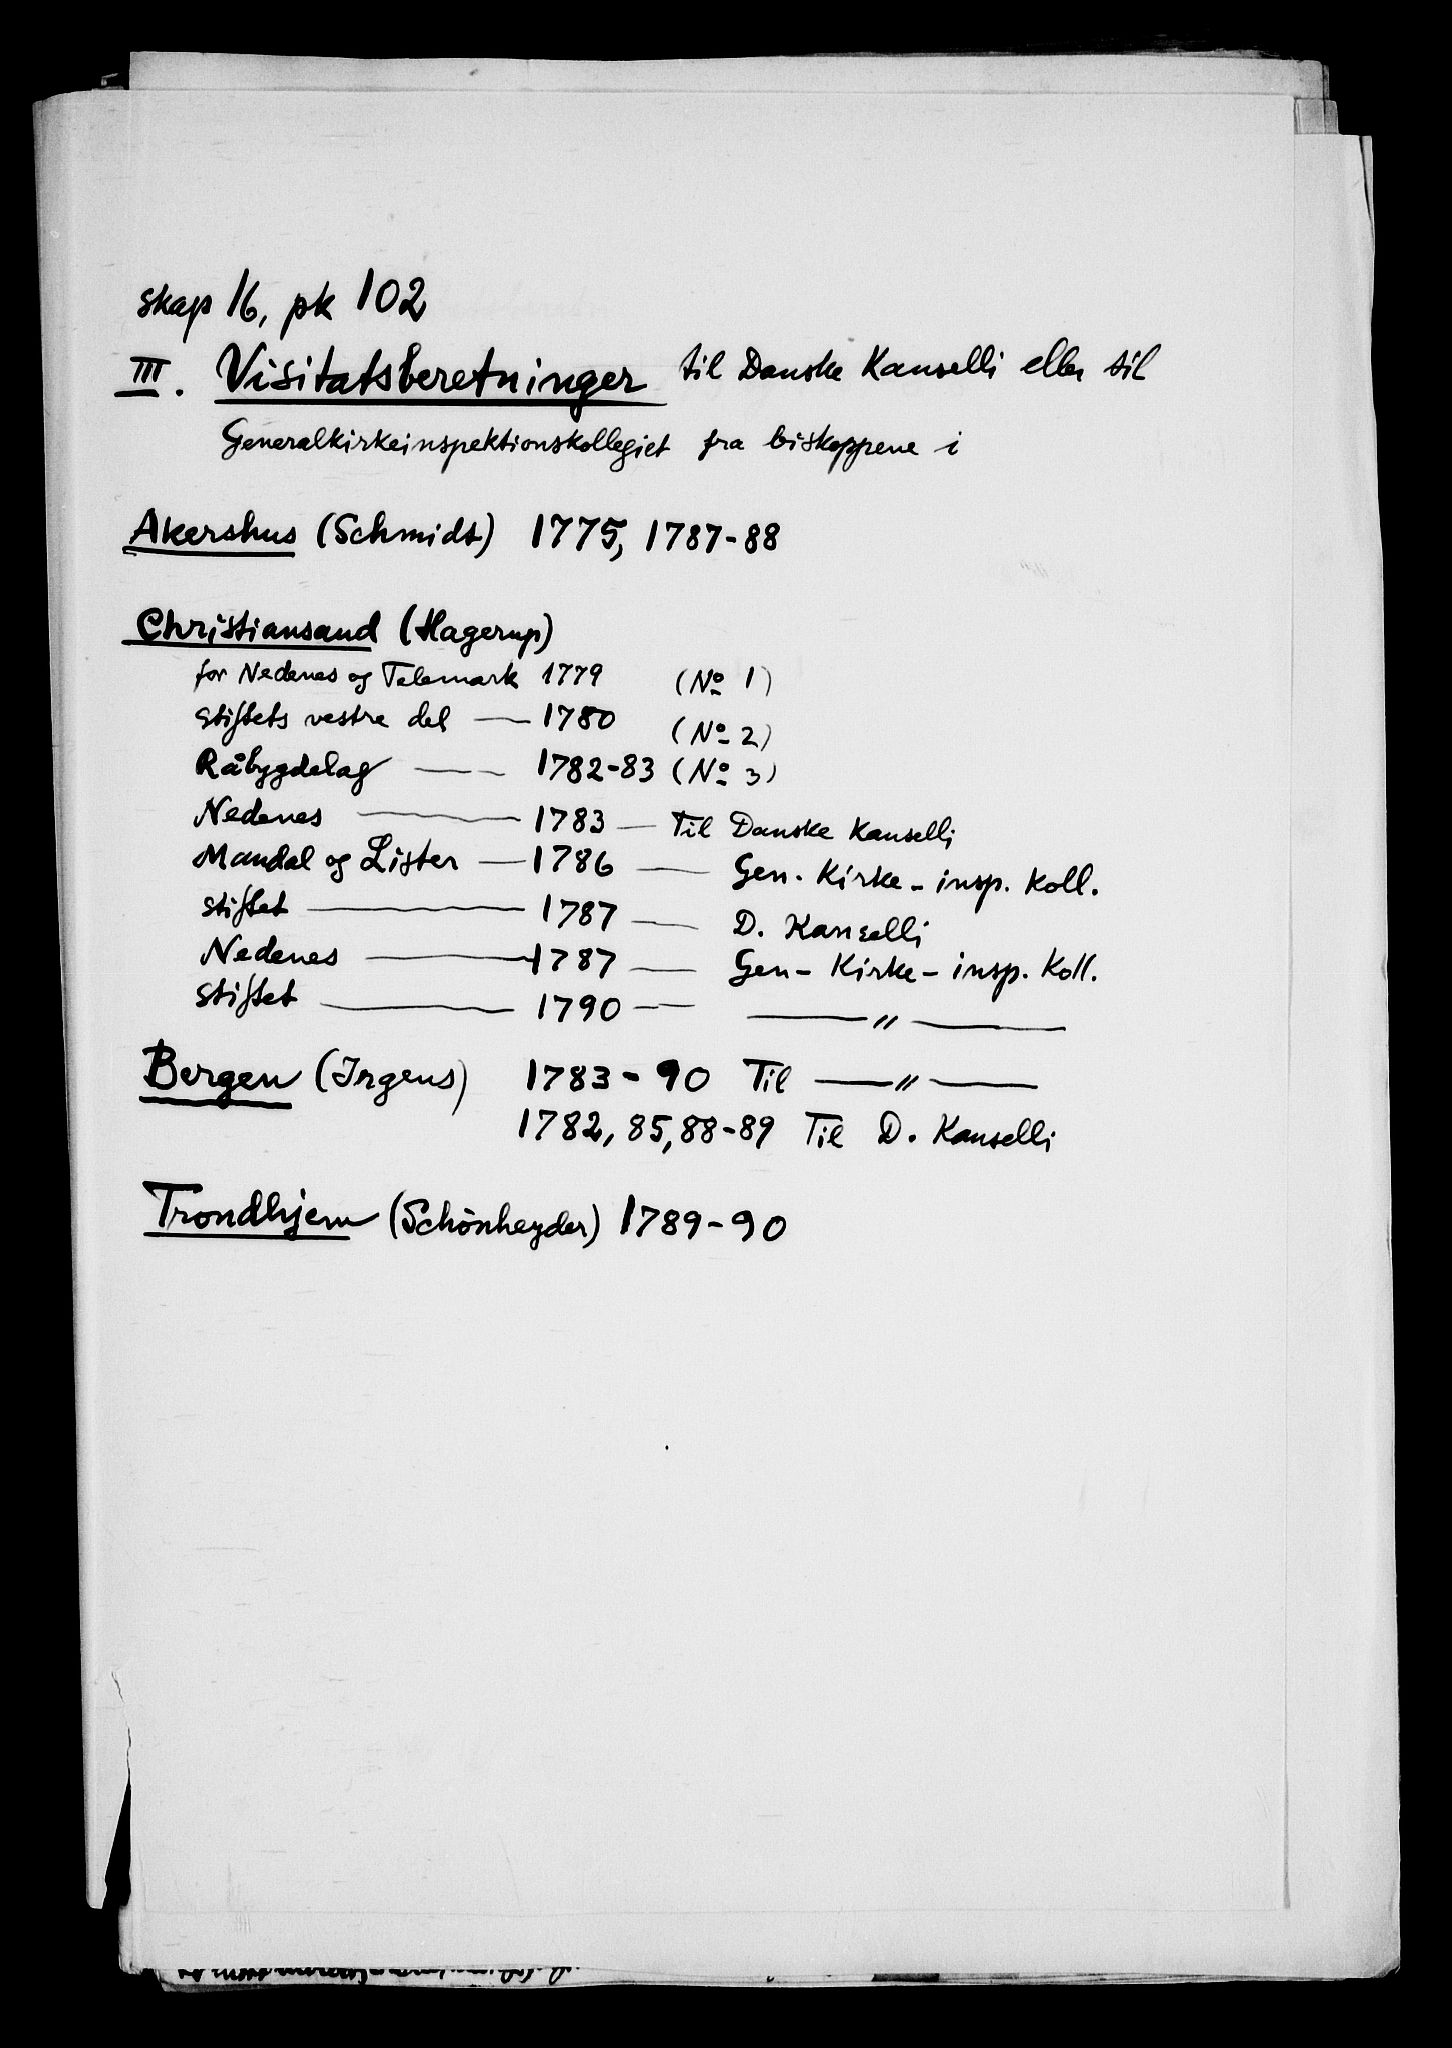 skap 16, pk 102
III. Visitatsberetninger til Danske Kanselli eller til
Generalkirkeinspektionskollegiet fra biskoppene i
Akershus (Schmidt) 1775, 1787-88
Christiansand (Hagerup)
for Nedenes og Telemark 1779 (No 1)
stiftets vestre del — 1780 (No 2)
Råbygdelag — — 1782-83 (No 3)
Nedenes — 1783 — Til Danske Kanselli
Mandal og Lister — 1786 — Gen. Kirke-insp. Koll.
stiftet — 1787 — D. Kanselli
Nedenes — 1787 — Gen- Kirke- insp. Koll.
stiftet — 1790 — — " —
Bergen (Irgens) 1783-90 Til — " —
1782, 85, 88-89 Til D. Kanselli
Trondhjem (Schönheyder) 1789-90